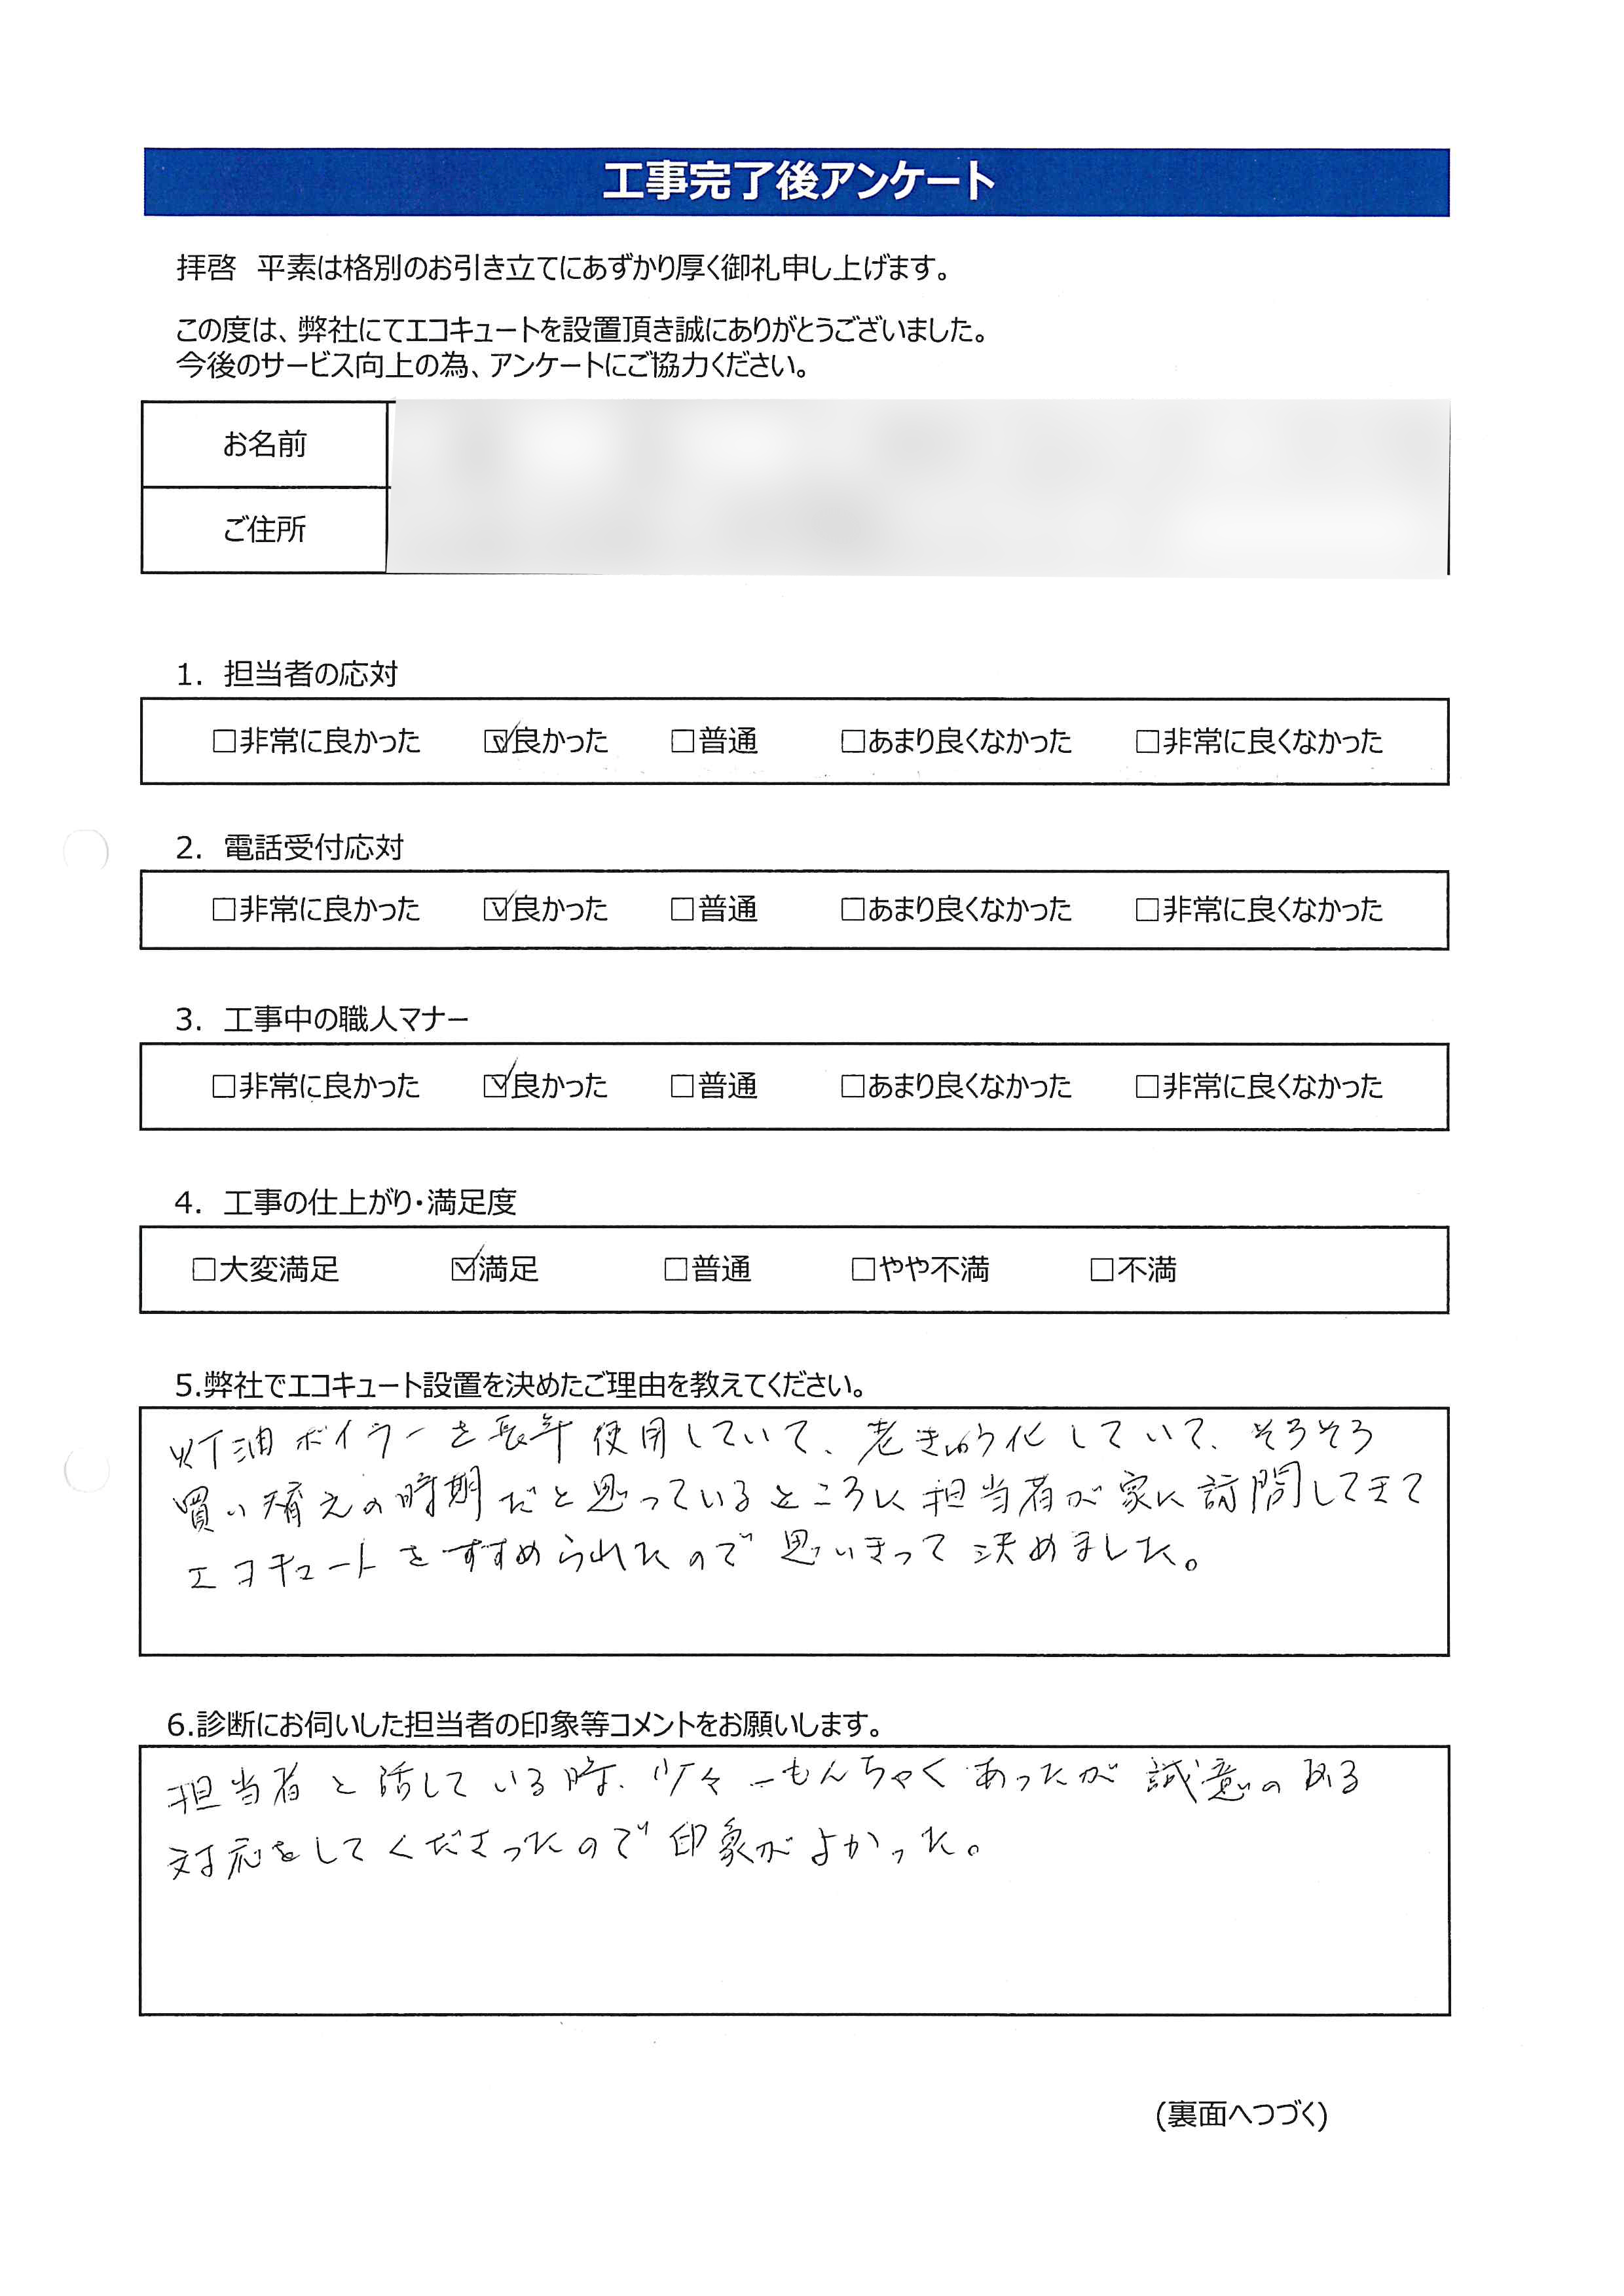 工事完了後アンケート
拝啓　平素は格別のお引き立てにあずかり厚く御礼申し上げます。
この度は、弊社にてエコキュートを設置頂き誠にありがとうございました。
今後のサービス向上の為、アンケートにご協力ください。
お名前
ご住所
1.　担当者の応対
□非常に良かった　☑良かった　□普通　□あまり良くなかった　□非常に良くなかった
2.　電話受付応対
□非常に良かった　☑良かった　□普通　□あまり良くなかった　□非常に良くなかった
3.　工事中の職人マナー
□非常に良かった　☑良かった　□普通　□あまり良くなかった　□非常に良くなかった
4.　工事の仕上がり・満足度
□大変満足　☑満足　□普通　□やや不満　□不満
5.弊社でエコキュート設置を決めたご理由を教えてください。
灯油ボイラーを長年使用していて、老きゅう化していて、そろそろ
買い替えの時期だと思っているところに担当者が家に訪問してきて
エコキュートをすすめられたので思いきって決めました。
6.診断にお伺いした担当者の印象等コメントをお願いします。
担当者と話している時、少々一もんちゃくあったが誠意のある
対応をしてくださったので印象がよかった。
(裏面へつづく)